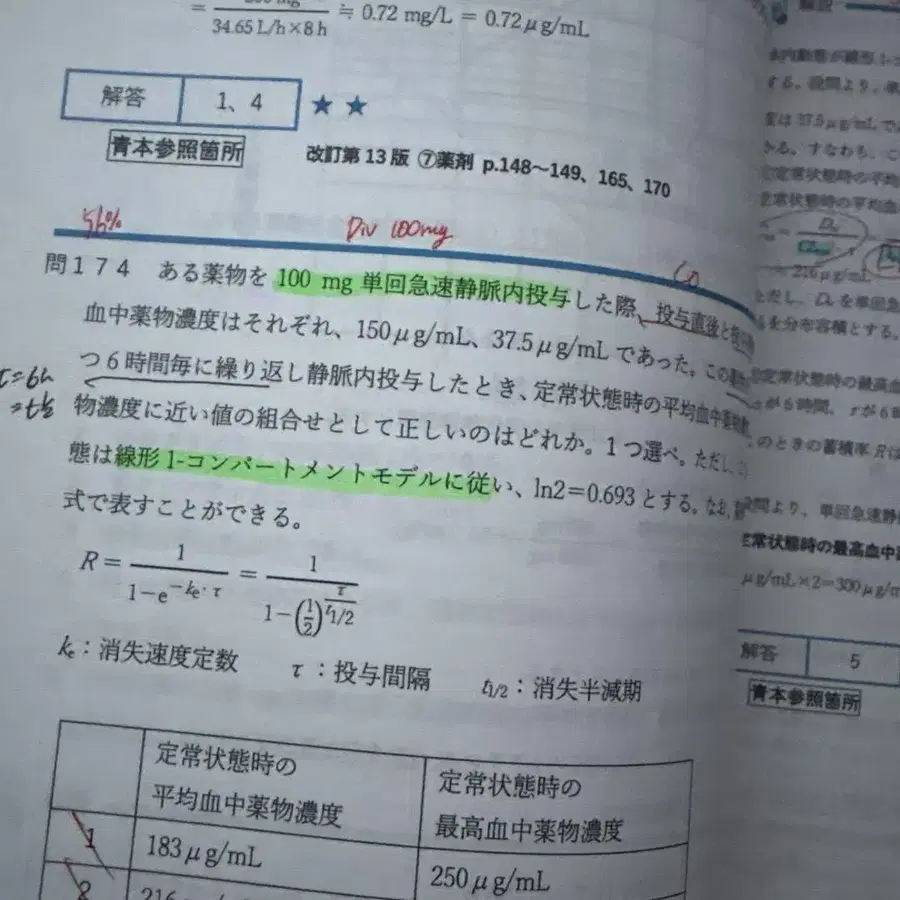 34.65 L/h×8 h
≒ 0.72 mg/L = 0.72 μg/mL
解答 1、4 ★ ★
青本参照箇所 改訂第13版 ⑦薬剤 p.148〜149、165、170
Div 100mg
C0
問174 ある薬物を 100 mg 単回急速静脈内投与した際、投与直後と
血中薬物濃度はそれぞれ、150 μg/mL、37.5 μg/mL であった。この
つ6時間毎に繰り返し静脈内投与したとき、定常状態時の平均血中薬
物濃度に近い値の組合せとして正しいのはどれか。1つ選べ。ただし、
態は線形1-コンパートメントモデルに従い、ln2=0.693とする。なお、
式で表すことができる。
R = 1/(1−e^(−ke・τ)) = 1/(1−(1/2)^(τ/t1/2))
ke:消失速度定数 τ:投与間隔 t1/2:消失半減期
定常状態時の平均血中薬物濃度 定常状態時の最高血中薬物濃度
1 183 μg/mL 250 μg/mL
2 216
解説
する。設問より、
度は 37.5 μg/mL で
きる。すなわち、こ
定常状態時の平均
≒ 216 μg/mL
ただし、
を分布容積とする。
定常状態時の最高血
が6時間、τが6時
このときの蓄積率Rは
設問より、単回急速静
定常状態時の最高血中
μg/mL×2=300 μg/m
解答 5
青本参照箇所